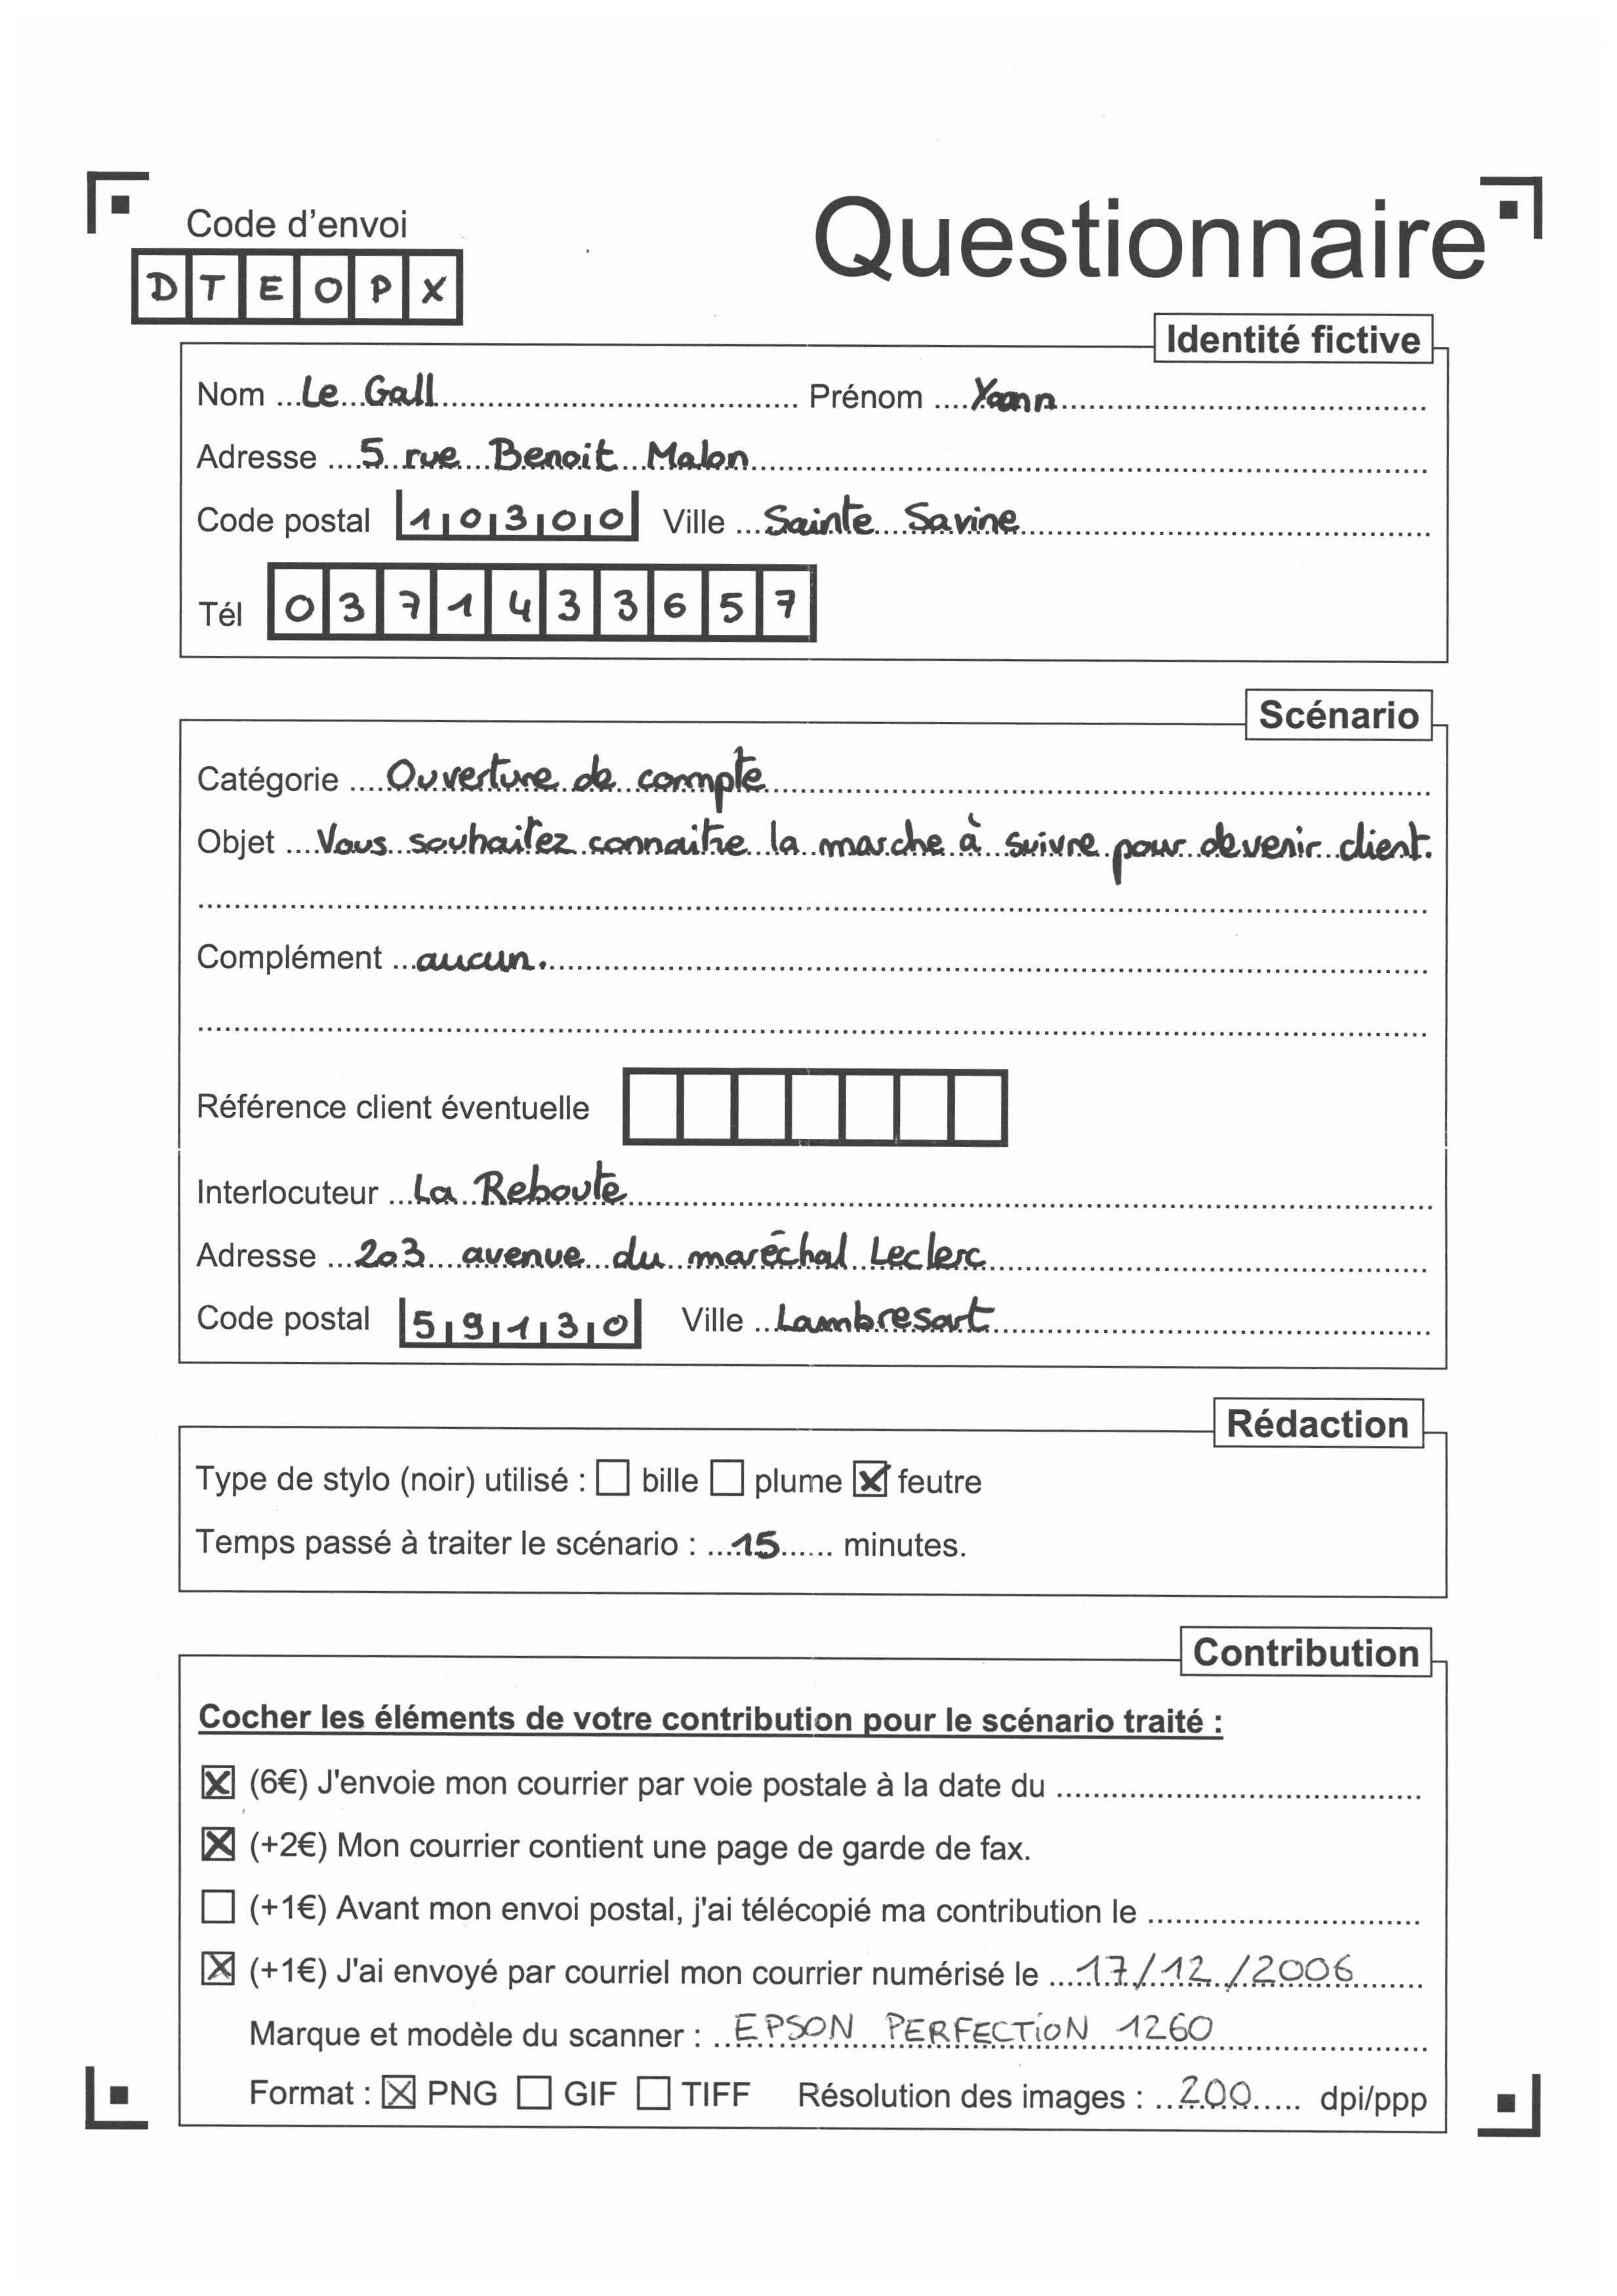 Code d'envoi
Questionnaire
DTEOPX
Identité fictive
Nom Le Gall Prénom Yoann
Adresse 5 rue Benoit Malon
Code postal 10300 Ville Sainte Savine
Tél 0371433657
Scénario
Catégorie Ouverture de compte
Objet Vous souhaitez connaitre la marche à suivre pour devenir client.
Complément aucun.
Référence client éventuelle
Interlocuteur La Reboute
Adresse 203 avenue du maréchal Leclerc
Code postal 59130 Ville Lambresart
Rédaction
Type de stylo (noir) utilisé : ☐ bille ☐ plume ☒ feutre
Temps passé à traiter le scénario : 15 minutes.
Contribution
Cocher les éléments de votre contribution pour le scénario traité :
☒ (6€) J'envoie mon courrier par voie postale à la date du
☒ (+2€) Mon courrier contient une page de garde de fax.
☐ (+1€) Avant mon envoi postal, j'ai télécopié ma contribution le
☒ (+1€) J'ai envoyé par courriel mon courrier numérisé le 17/12/2006
Marque et modèle du scanner : EPSON PERFECTiON 1260
Format : ☒ PNG ☐ GIF ☐ TIFF Résolution des images : 200 dpi/ppp